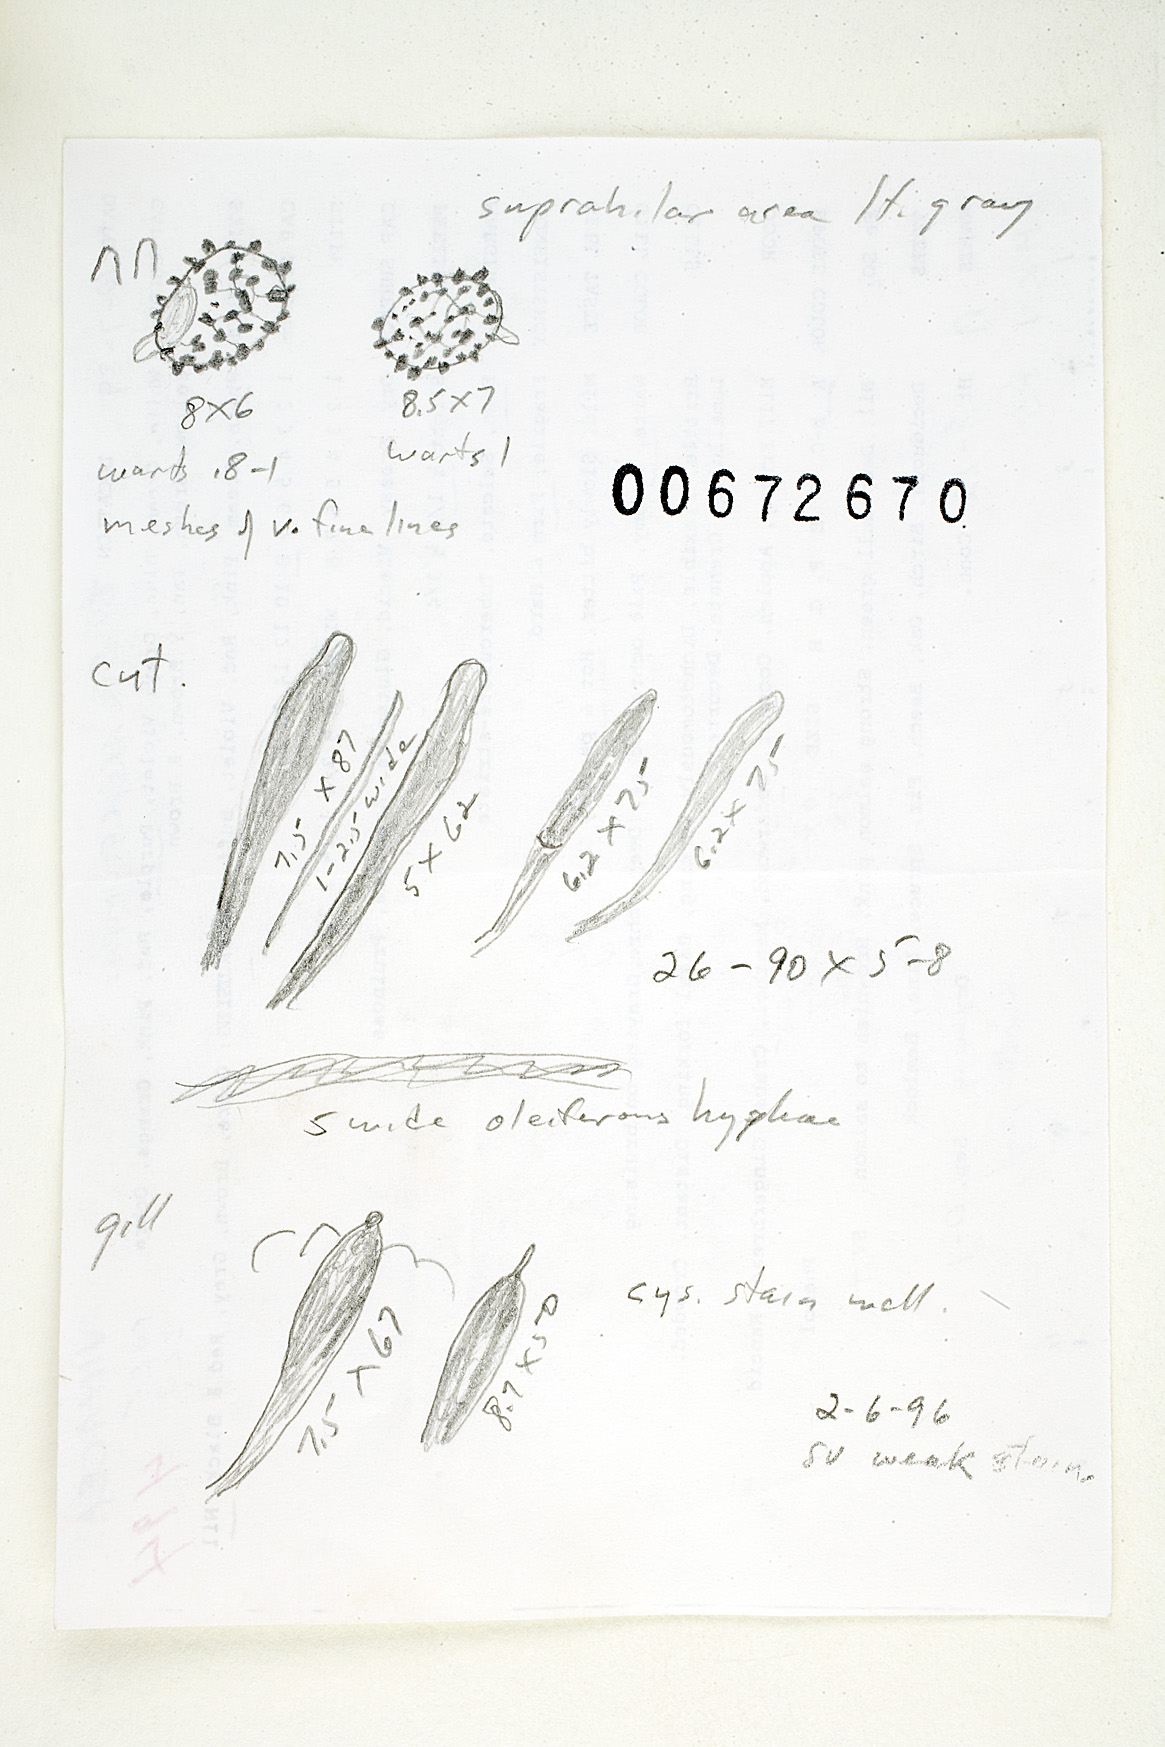 suprahilar area lt. gray
8X6
8.5X7
warts .8-1
warts 1
meshes of v. fine lines
00672670
cut.
7.5 X 87
1-2.5 wide
5 X 62
6.2 X 75
6.2 X 75
26-90 X 5-8
5 wide oleiferous hyphae
gill
7.5 X 67
8.7 X 50
cys. stain well.
2-6-96
SV weak stain.